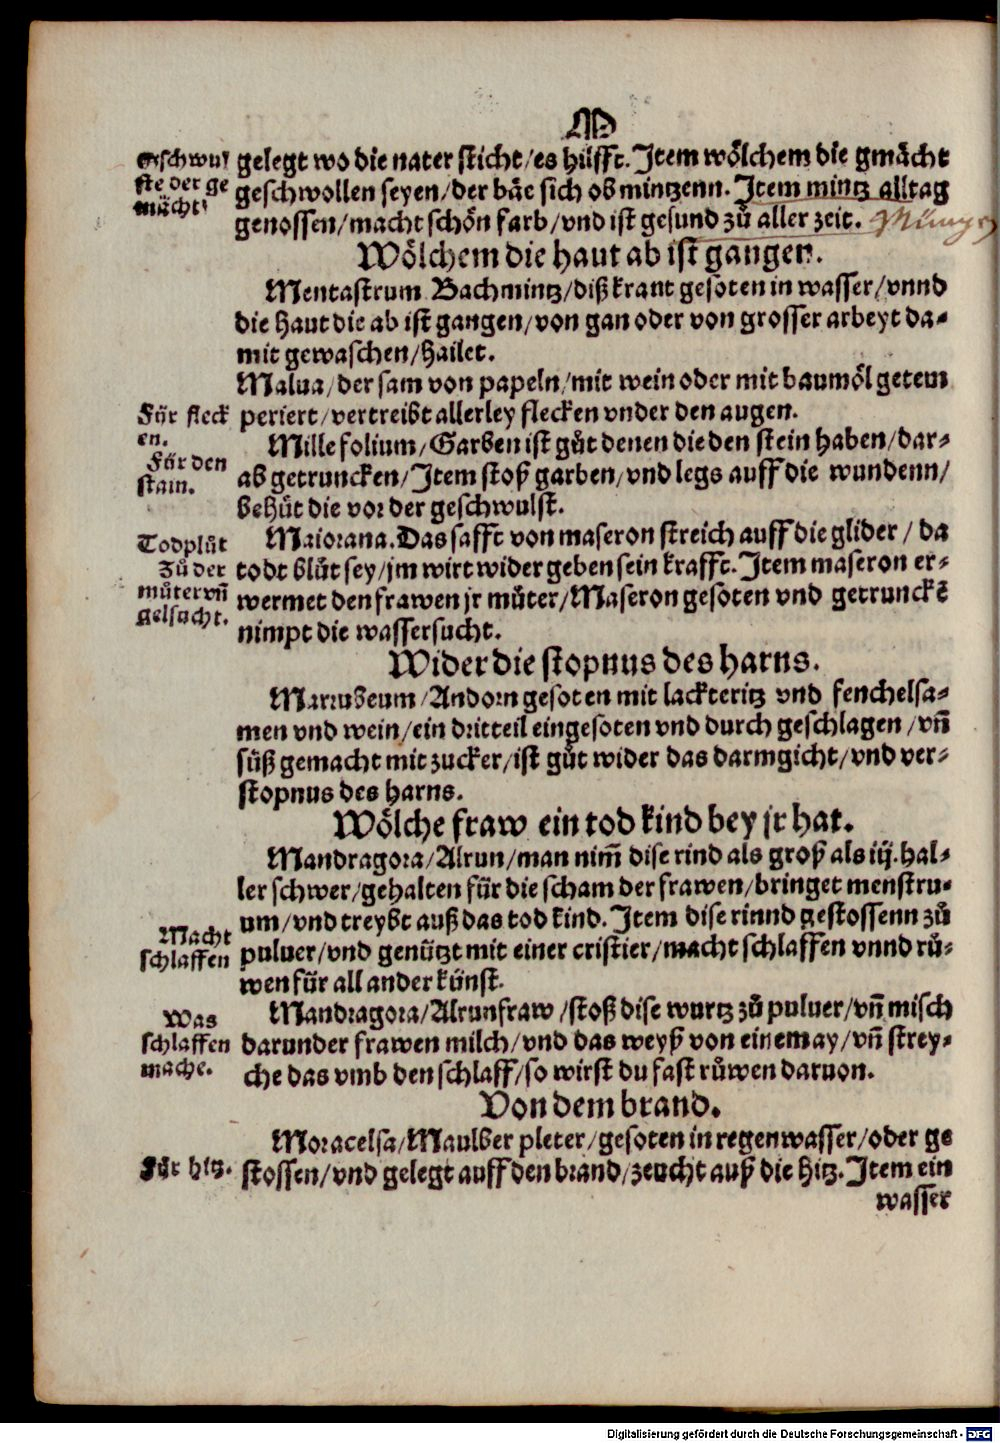 M
gelegt wo die nater sticht/es hilfft. Item wölchem die gmächt
geschwollen seyen/der bäe sich ob mintzenn. Item mintz alltag
genossen/macht schön farb/vnd ist gesund zů aller zeit.
Geschwul
ste der ge
mächt
Wölchem die haut ab ist gangen.
Mentastrum Bachmintz/diß kraut gesoten in wasser/vnnd
die haut die ab ist gangen/von gan oder von grosser arbeyt da-
mit gewaschen/hailet.
Malua/der sam von papeln/mit wein oder mit baumöl getem
periert/vertreibt allerley flecken vnder den augen.
Für fleck
en.
Mille folium/Garben ist gůt denen die den stein haben/dar-
ab getruncken/Item stoß garben/vnd legs auff die wundenn/
behüt die vor der geschwulst.
Für den
stain.
Maiorana. Das safft von maseron streich auff die glider/da
todt blůt sey/jm wirt wider geben sein krafft. Item maseron er-
wermet den frawen jr můter/Maseron gesoten vnd getrunckē
nimpt die wassersucht.
Todplůt
Zů der
můter vñ
gelsucht.
Wider die stopnus des harns.
Marrubeum/Andorn gesoten mit lackteritz vnd fenchelsa-
men vnd wein/ein dritteil eingesoten vnd durch geschlagen/vñ
süß gemacht mit zucker/ist gůt wider das darmgicht/vnd ver-
stopnus des harns.
Wölche fraw ein tod kind bey jr hat.
Mandragora/Alrun/man nim̃ dise rind als groß als iij. hal-
ler schwer/gehalten für die scham der frawen/bringet menstru-
um/vnd treybt auß das tod kind. Item dise rinnd gestossenn zů
puluer/vnd genützt mit einer cristier/macht schlaffen vnnd rů-
wen für all ander künst.
Macht
schlaffen
Mandragora/Alrunfraw/stoß dise wurtz zů puluer/vñ misch
darunder frawen milch/vnd das weyß von einem ay/vñ strey-
che das vmb den schlaff/so wirst du fast růwen daruon.
Was
schlaffen
mache.
Von dem brand.
Moracelsa/Maulber pleter/gesoten in regenwasser/oder ge
stossen/vnd gelegt auff den brand/zeucht auß die hitz. Item ein
Für hitz.
wasser
Digitalisierung gefördert durch die Deutsche Forschungsgemeinschaft - DFG